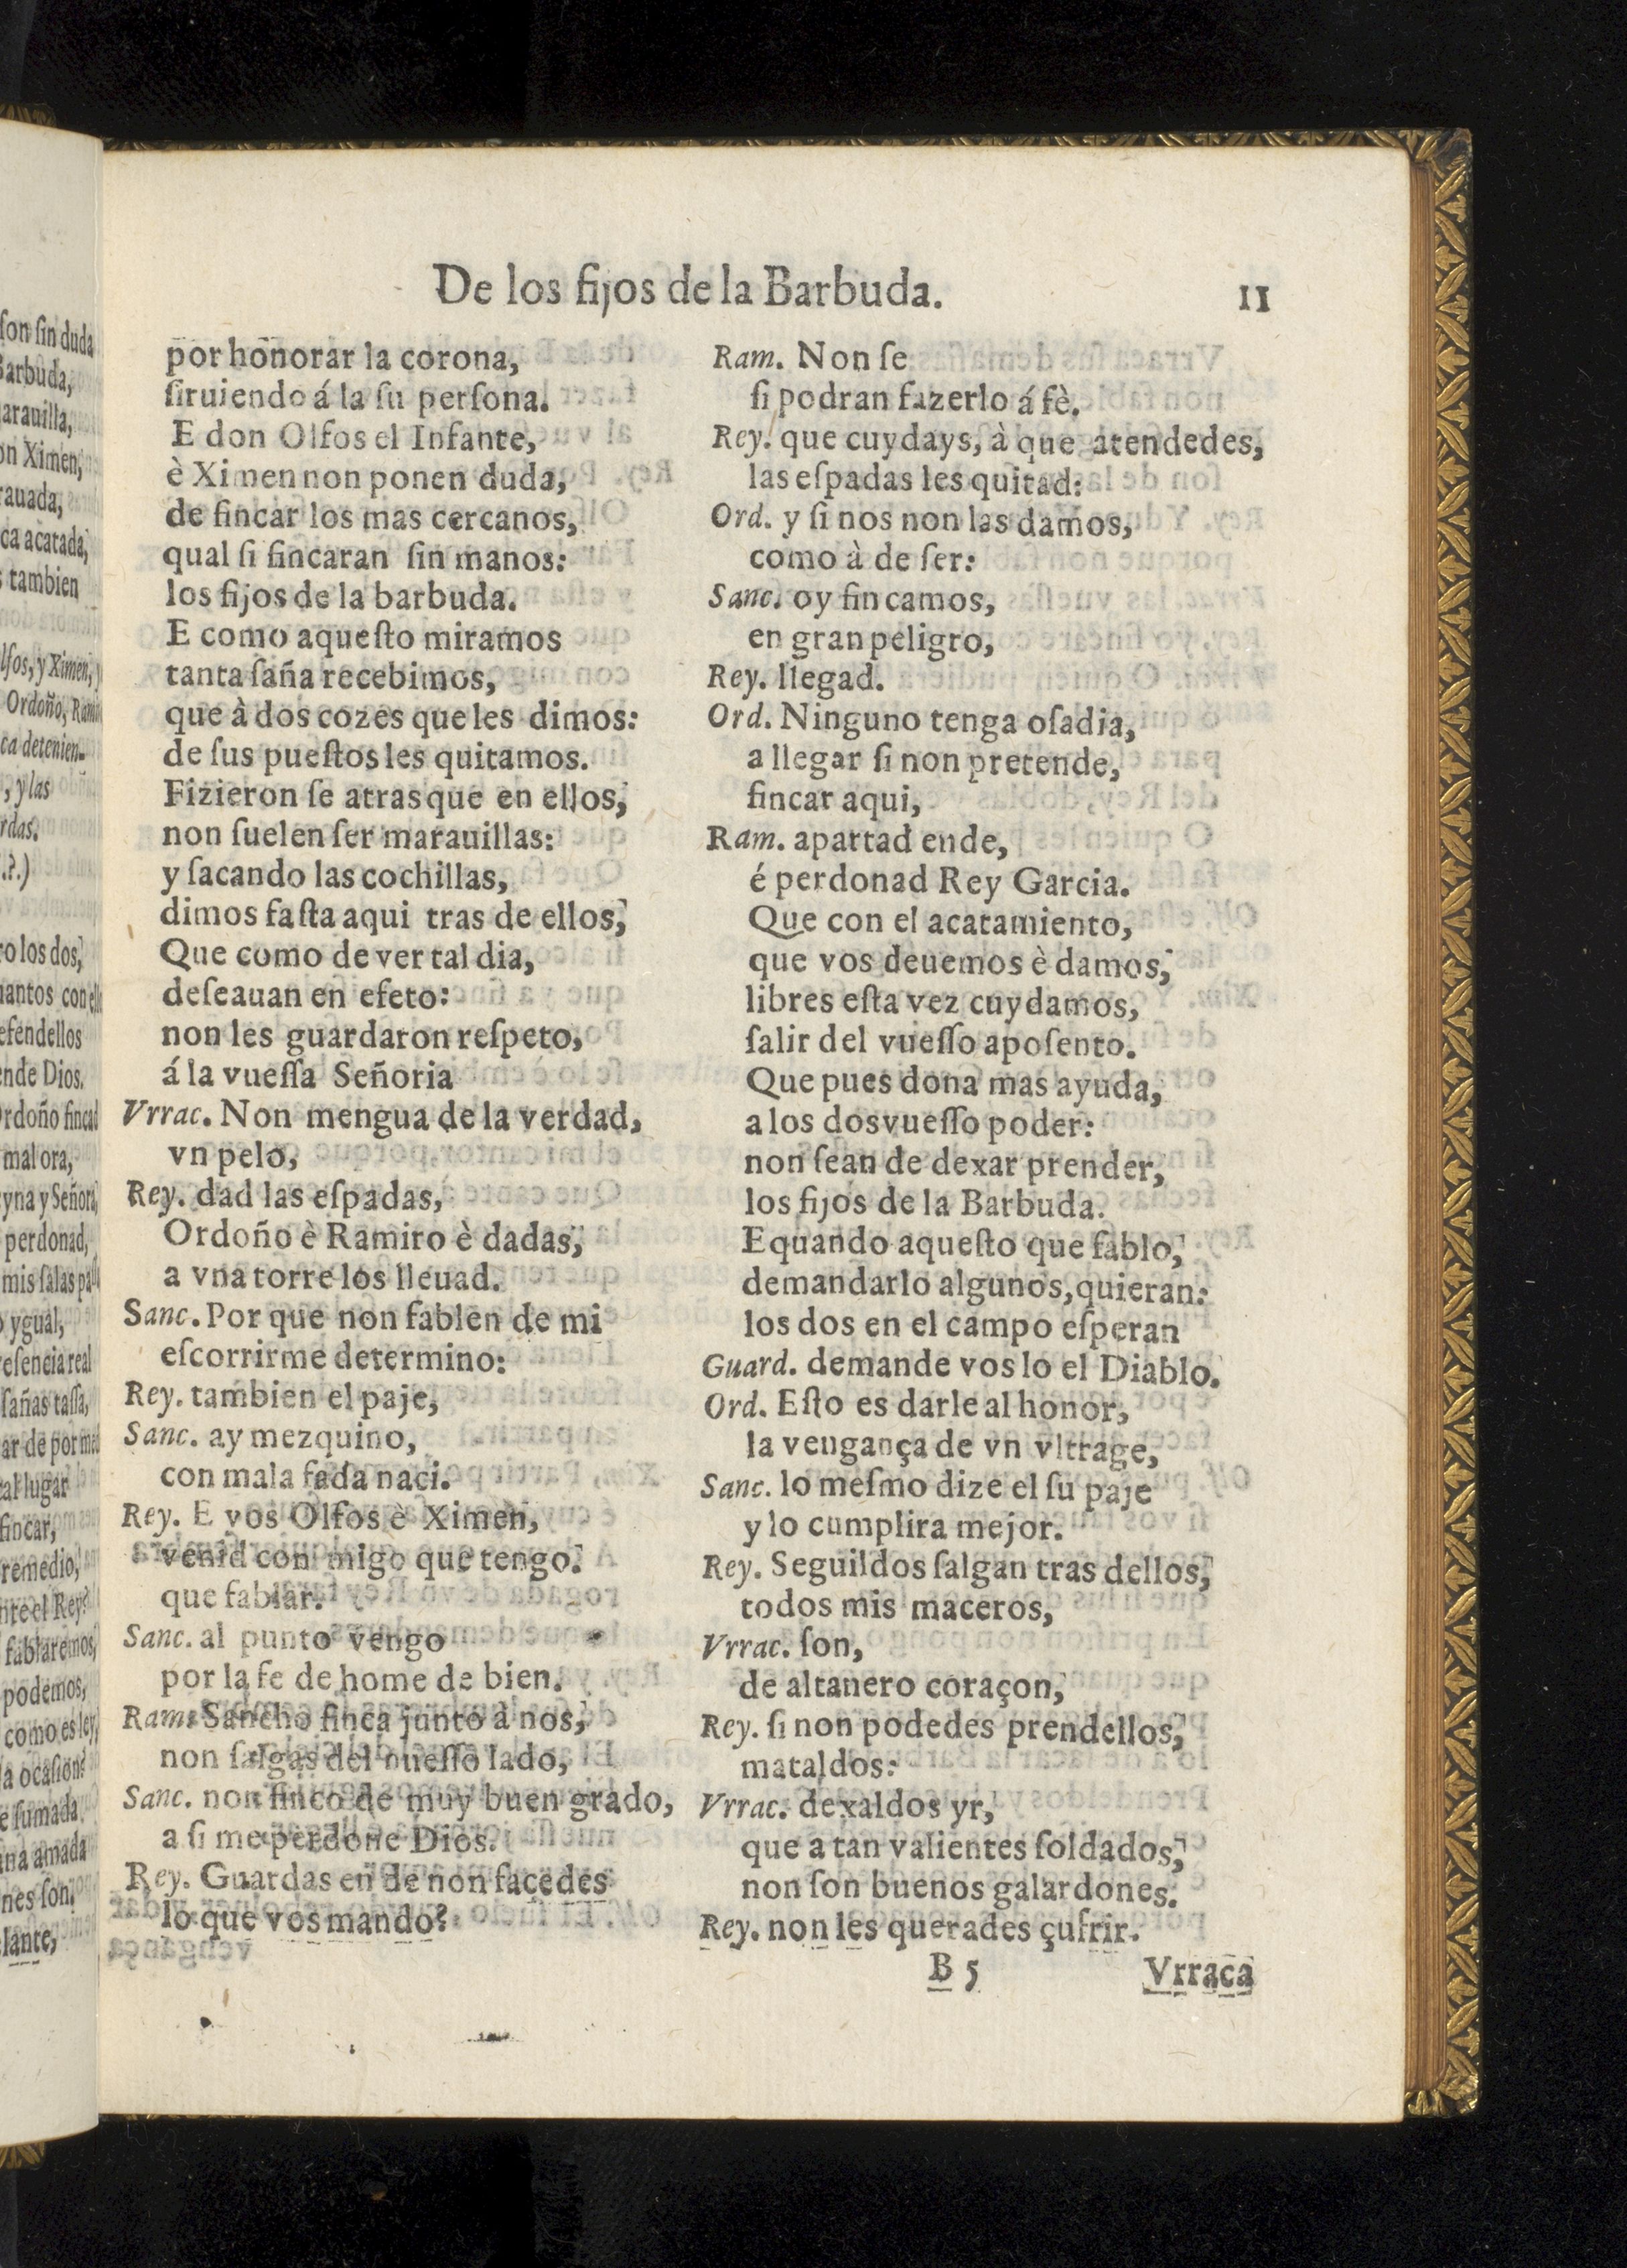 De los fijos de la Barbuda.
11
por honorar la corona,
ſiruiendo á la ſu perſona.
E don Olfos el Infante,
è Ximen non ponen duda,
de fincar los mas cercanos,
qual ſi fincaran ſin manos:
los fijos de la barbuda.
E como aqueſto miramos
tanta ſaña recebimos,
que à dos cozes que les dimos:
de ſus pueſtos les quitamos.
Fizieron ſe atras que en ellos,
non ſuelen ſer marauillas:
y ſacando las cochillas,
dimos faſta aqui tras de ellos,
Que como de ver tal dia,
deſeauan en efeto:
non les guardaron reſpeto,
á la vueſſa Señoria
Vrrac. Non mengua de la verdad,
vn pelo,
Rey. dad las eſpadas,
Ordoño è Ramiro è dadas,
a vna torre los lleuad.
Sanc. Por que non fablen de mi
eſcorrirme determino:
Rey. tambien el paje,
Sanc. ay mezquino,
con mala fada naci.
Rey. E vos Olfos è Ximen,
venid con migo que tengo.
que fablar.
Sanc. al punto vengo
por la fe de home de bien.
Ram. Sancho finca junto à nos,
non ſalgas del nueſſo lado,
Sanc. non finco de muy buen grado,
a ſi me perdone Dios.
Rey. Guardas en de non facedes
lo que vos mando?
Ram. Non ſe
ſi podran fazerlo á fè.
Rey. que cuydays, à que atendedes,
las eſpadas les quitad:
Ord. y ſi nos non las damos,
como à de ſer:
Sanc. oy fincamos,
en gran peligro,
Rey. llegad.
Ord. Ninguno tenga oſadia,
a llegar ſi non pretende,
fincar aqui,
Ram. apartad ende,
é perdonad Rey Garcia.
Que con el acatamiento,
que vos deuemos è damos,
libres eſta vez cuydamos,
ſalir del vueſſo apoſento.
Que pues dona mas ayuda,
a los dos vueſſo poder:
non ſean de dexar prender,
los fijos de la Barbuda.
E quando aqueſto que fablo,
demandarlo algunos, quieran:
los dos en el campo eſperan
Guard. demande vos lo el Diablo.
Ord. Eſto es darle al honor,
la vengança de vn vltrage,
Sanc. lo meſmo dize el ſu paje
y lo cumplira mejor.
Rey. Seguildos ſalgan tras dellos,
todos mis maceros,
Vrrac. ſon,
de altanero coraçon,
Rey. ſi non podedes prendellos,
mataldos:
Vrrac. dexaldos yr,
que a tan valientes ſoldados,
non ſon buenos galardones.
Rey. non les querades çufrir.
B 5
Vrraca